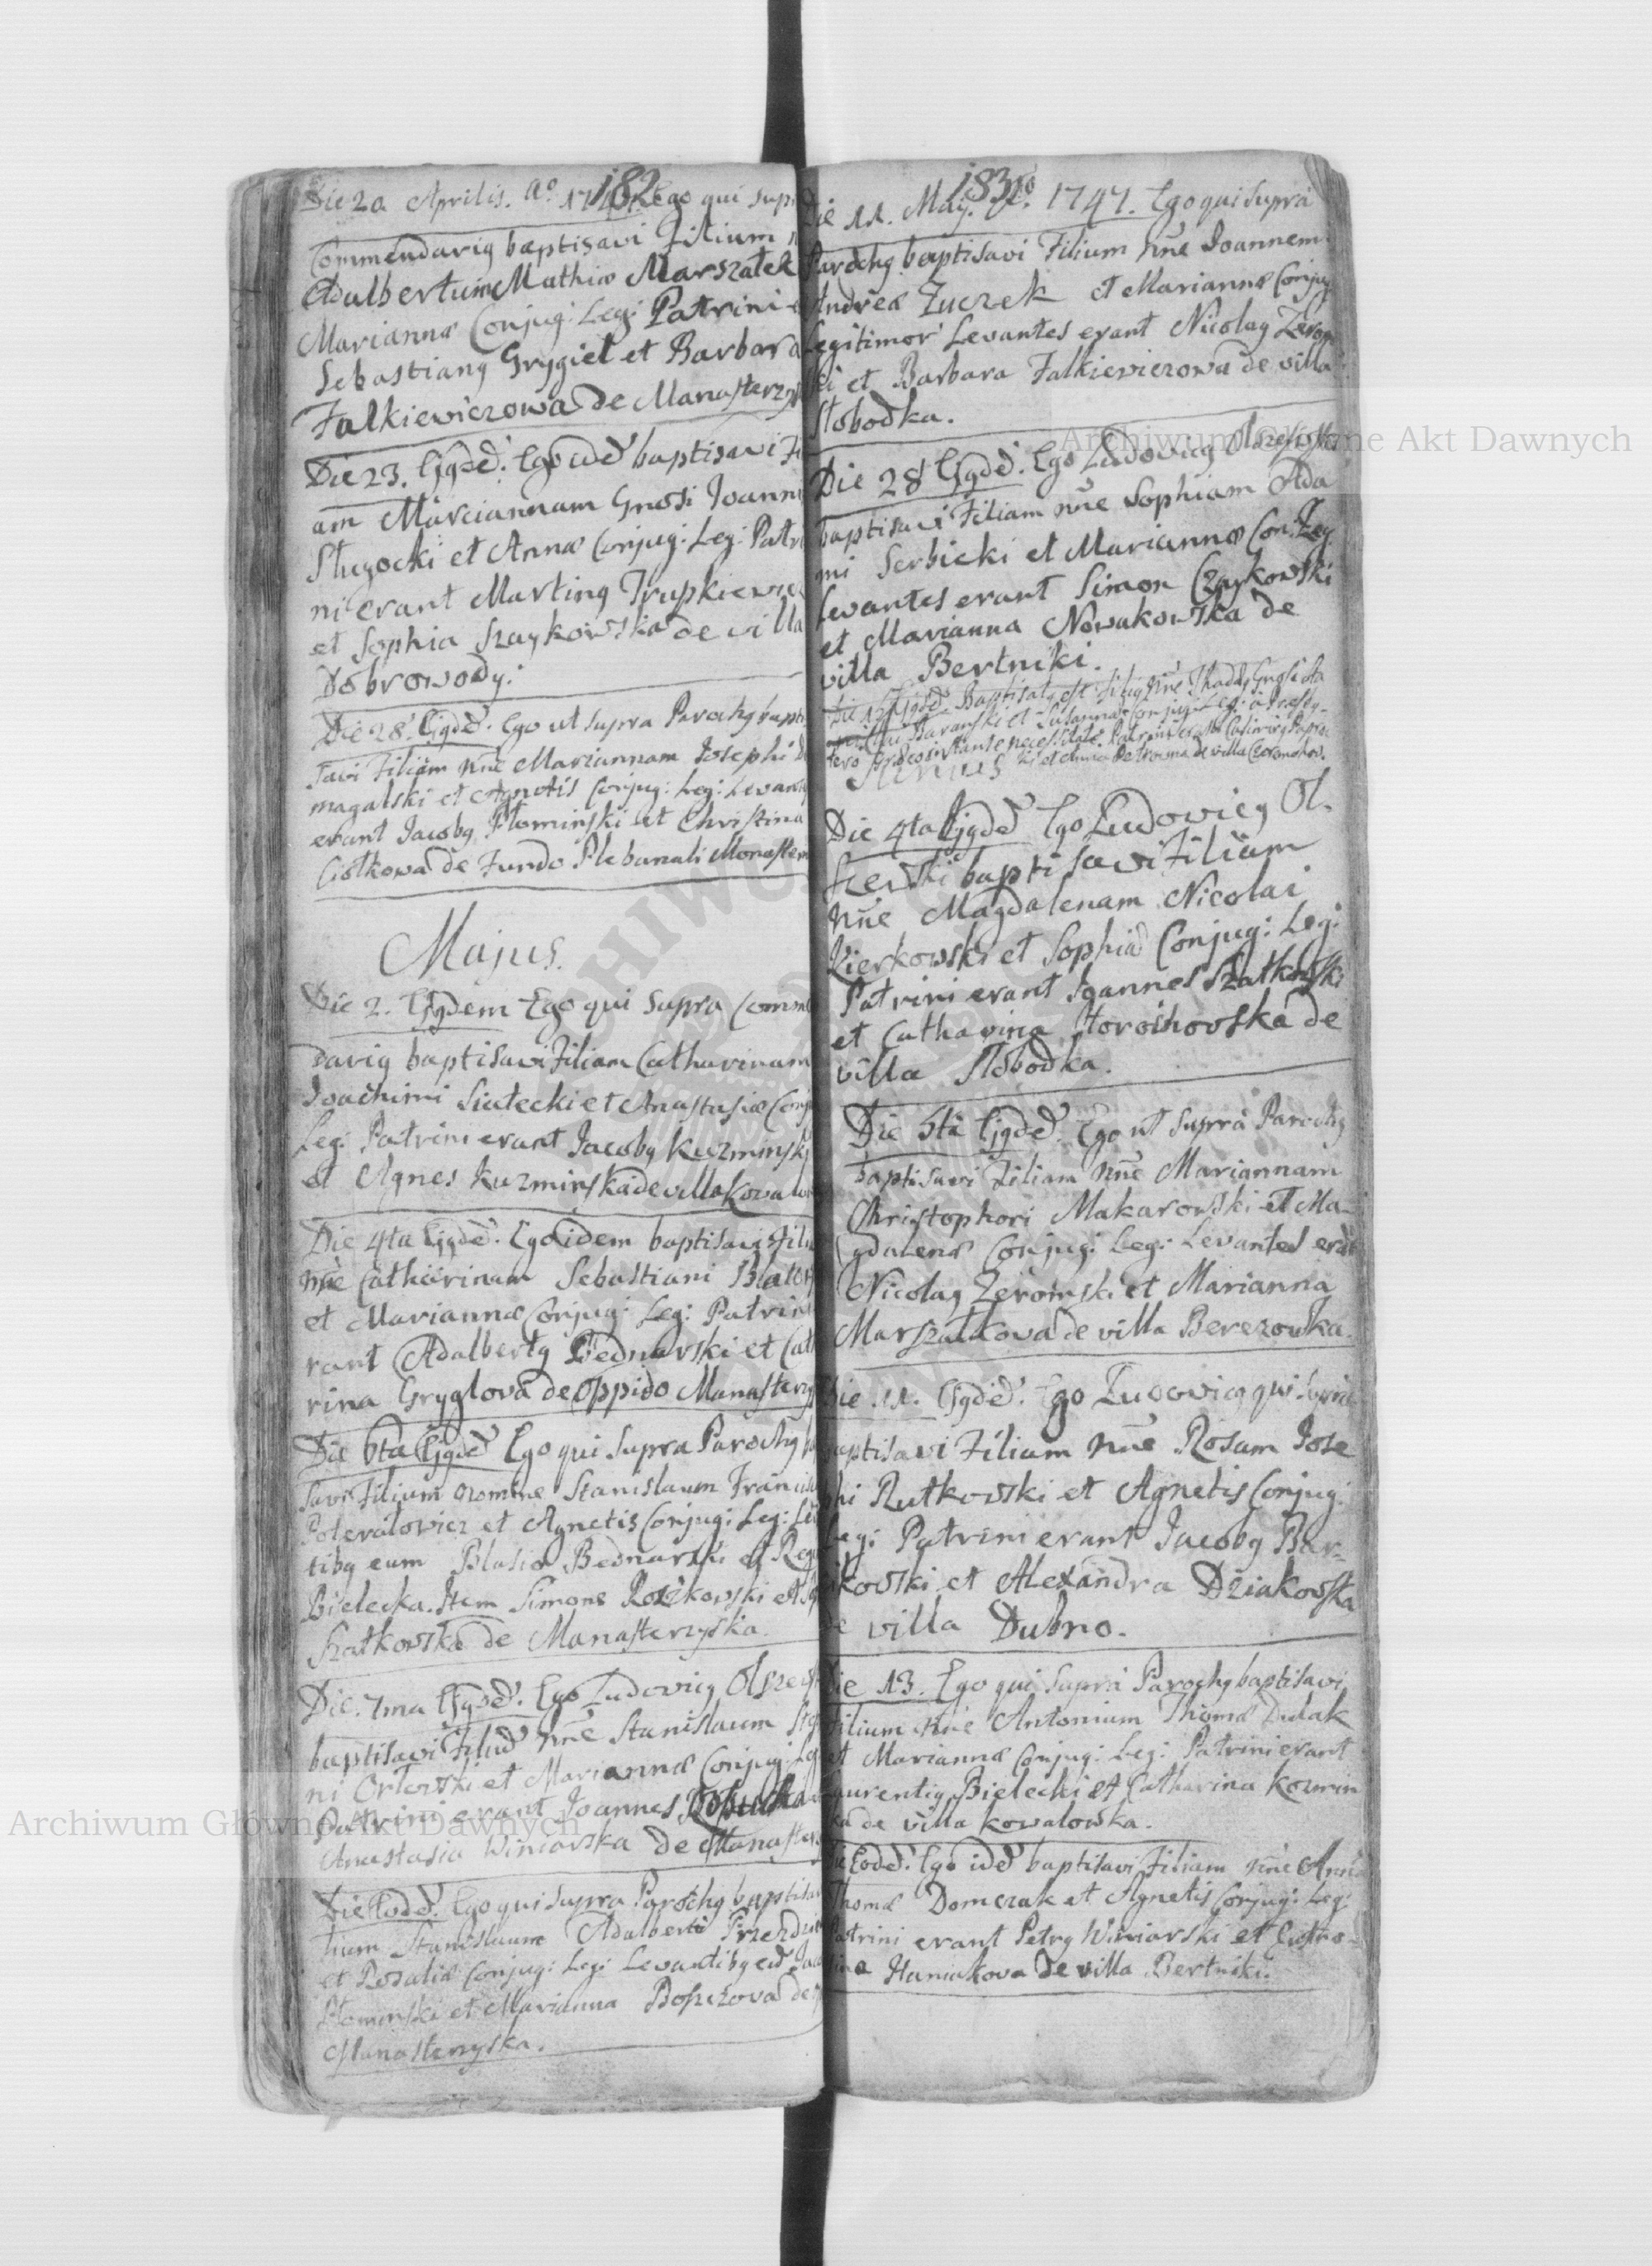 182
Die 20 Aprilis. Aº 17 Ego qui sup
Commendariꝰ baptisavi Filium
Adalbertum Mathiæ Marszałek
Mariannæ Conjug: Leg: Patrini
Sebastianꝰ Grygiel et Barbara
Falkiewiczowa de Manasterzys
Die 23. Ejꝰdẽ. Ego idẽ baptisavi Fi
am Mariannam Gnosi Joanni
Sługocki et Annæ Conjug: Leg: Patri
ni erant Martinꝰ Trupkiewic
et Sophia Szaykowska de villa
Dobrowody.
Die 28. Ejꝰdẽ. Ego ut supra Parochꝰ bapti
savi Filiam nñe Mariannam Josephi
magalski et Agnetis Conjug: Leg: Levant
erant Jacobꝰ Płominski et Christina
Ciołkowa de Fundo Plebanali Monaster
Majus.
Die 2. Ejꝰdem Ego qui supra Commē
dariꝰ baptisavi Filiam Catharinam
Joachimi Siatecki et Anastasiæ Conj
Leg: Patrini erant Jacobꝰ Kuzminski
et Agnes Kuzminska de villa Kowalow
Die 4ta Ejꝰdẽ. Ego idem baptisavi Filia
nñe Catharinam Sebastiani
et Mariannæ Conjug: Leg: Patrini
rant Adalbertꝰ Bednarski et Cath
rina Gryglova de Oppido Manasterzys
Die 6ta Ejꝰdẽ Ego qui supra Parochꝰ ba
savi Filium nomine Stanislaum Francis
et Agnetis Conjug: Leg: Le
tibꝰ eum Blasio Bednarski et Reg
Bielecka. Item Simone Rożkowski et
Szatkowska de Manasterzyska.
Die 7ma Ejꝰdẽ. Ego Ludovicꝰ Olszews
baptisavi Filiũ nñe Stanislaum Ste
ni Orłowski et Mariannæ Conjug: Leg
Patrini erant Joannes
Anastasia Winiarska de Manaster
Die Eodẽ. Ego qui supra Parochꝰ baptisa
lium Stanislaum Adalberti Przezdzie
et Rosaliæ Conjug: Leg: Levantibꝰ eũ Jac
Płominski et Marianna de
Manasterzyska.
183
Die 11. Maij. Aº. 1747. Ego qui supra
Parochꝰ baptisavi Filium nñe Joannem
Andreæ Zuczek et Mariannæ Conjug
Legitimor Levantes erant Nicolaꝰ Zerom
ski et Barbara Falkiewiczowa de villa
Słobodka.
Die 28 Ejꝰdẽ. Ego Ludovicꝰ Olszewski
baptisavi Filiam nñe Sophiam Ada
mi Serbicki et Mariannæ Con: Leg:
Levantes erant Simon Czaykowski
et Marianna Nowakowska de
villa Bertniki.
Die 12 Ejꝰdẽ. Baptisatꝰ est Filiꝰ nñe Thadæꝰ Gnosi Sta
Baranski et Susannæ Conjug: Leg: a Præsby-
tero instante necessitate. Patrini erant Casimirꝰ
ki et Anna de villa
Junius
Die 4ta Ejꝰdẽ Ego Ludovicꝰ Ol-
szewski baptisavi Filiam
nñe Magdalenam Nicolai
Kierkowski et Sophiæ Conjug: Leg:
Patrini erant Joannes Szatkowski
et Catharina Horoihovska de
villa Słobodka.
Die 6ta Ejꝰdẽ. Ego ut supra Parochꝰ
baptisavi Filiam nñe Mariannam
Christophori Makarowski et Ma-
gdalenæ Conjug: Leg: Levantes erãt
Nicolaꝰ Zeromski et Marianna
Marszałkowa de villa Berezowka.
Die 11. Ejꝰdẽ. Ego Ludovicꝰ qui supra
baptisavi Filiam nñe Rosam Jose
phi Rutkowski et Agnetis Conjug:
Leg: Patrini erant Jacobꝰ Bar-
kowski et Alexandra Dziakowska
de villa Dubno.
Die 13. Ego qui supra Parochꝰ baptisavi
Filium nñe Antonium Thomæ Dudak
et Mariannæ Conjug: Leg: Patrini erant
Laurentiꝰ Bielecki et Catharina Kozmin
ka de villa Kowalowka.
Die Eodẽ. Ego idẽ baptisavi Filiam nñe Annã
Thomæ Domczak et Agnetis Conjug: Leg:
Patrini erant Petrꝰ Winiarski et
Haniakova de villa Bertniki.
Archiwum Główne Akt Dawnych
Archiwum Główne Akt Dawnych